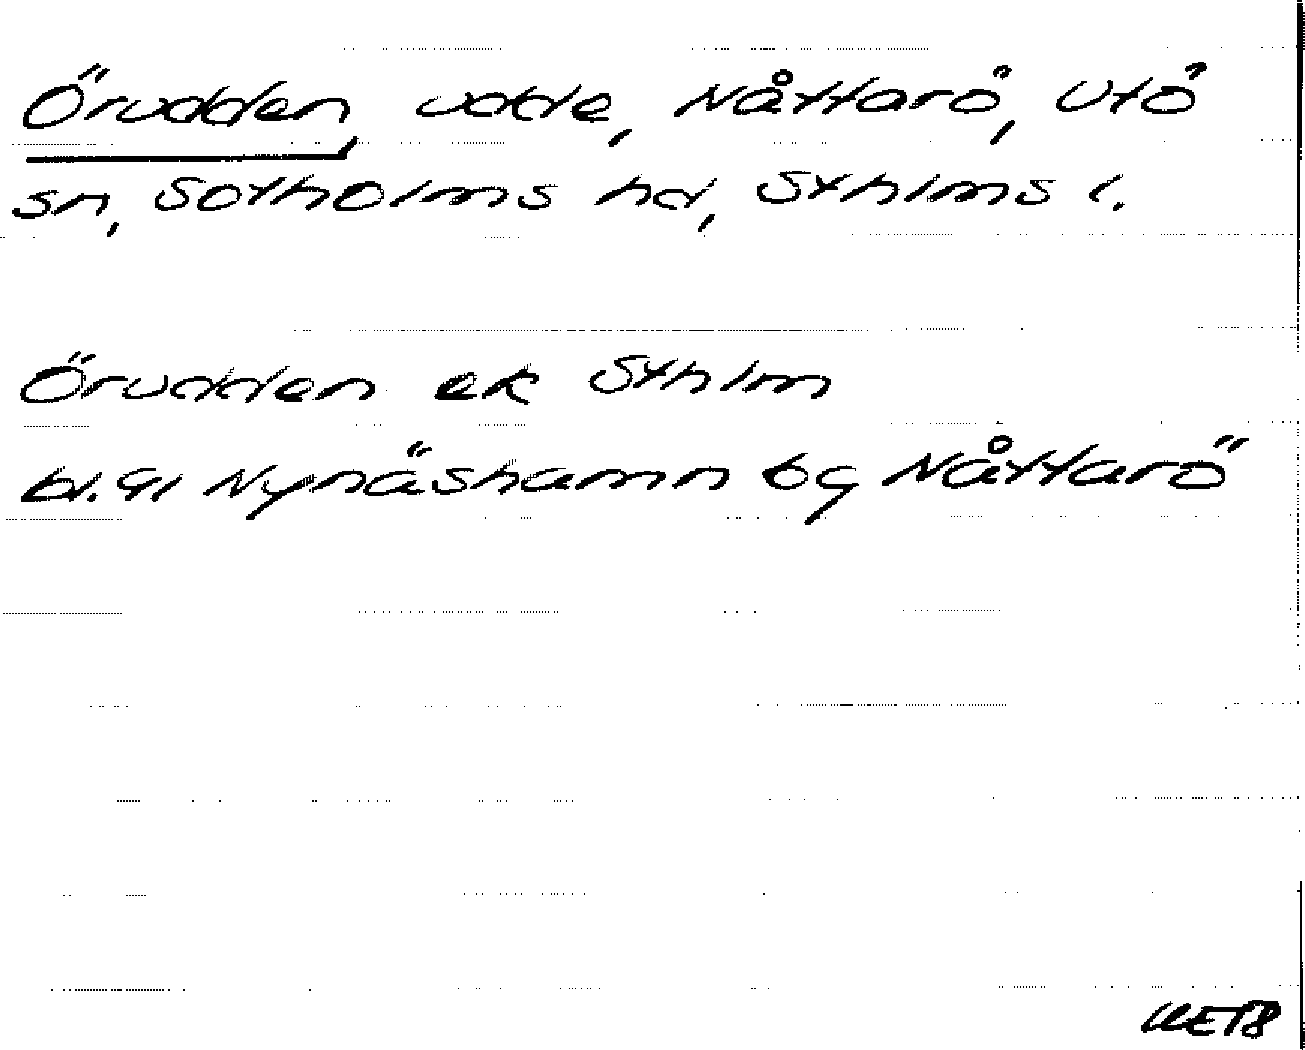 Örudden, udde, Nåttarö, Utö
sn, Sotholms hd, Sthlms l.
Örudden ek Sthlm
bl. 91 Nynäshamn bg Nåttarö